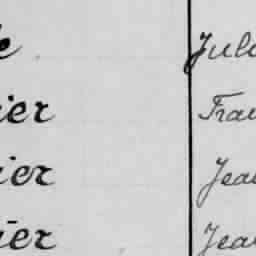 e Jul
ier Fra
ier Jea
ier Jea